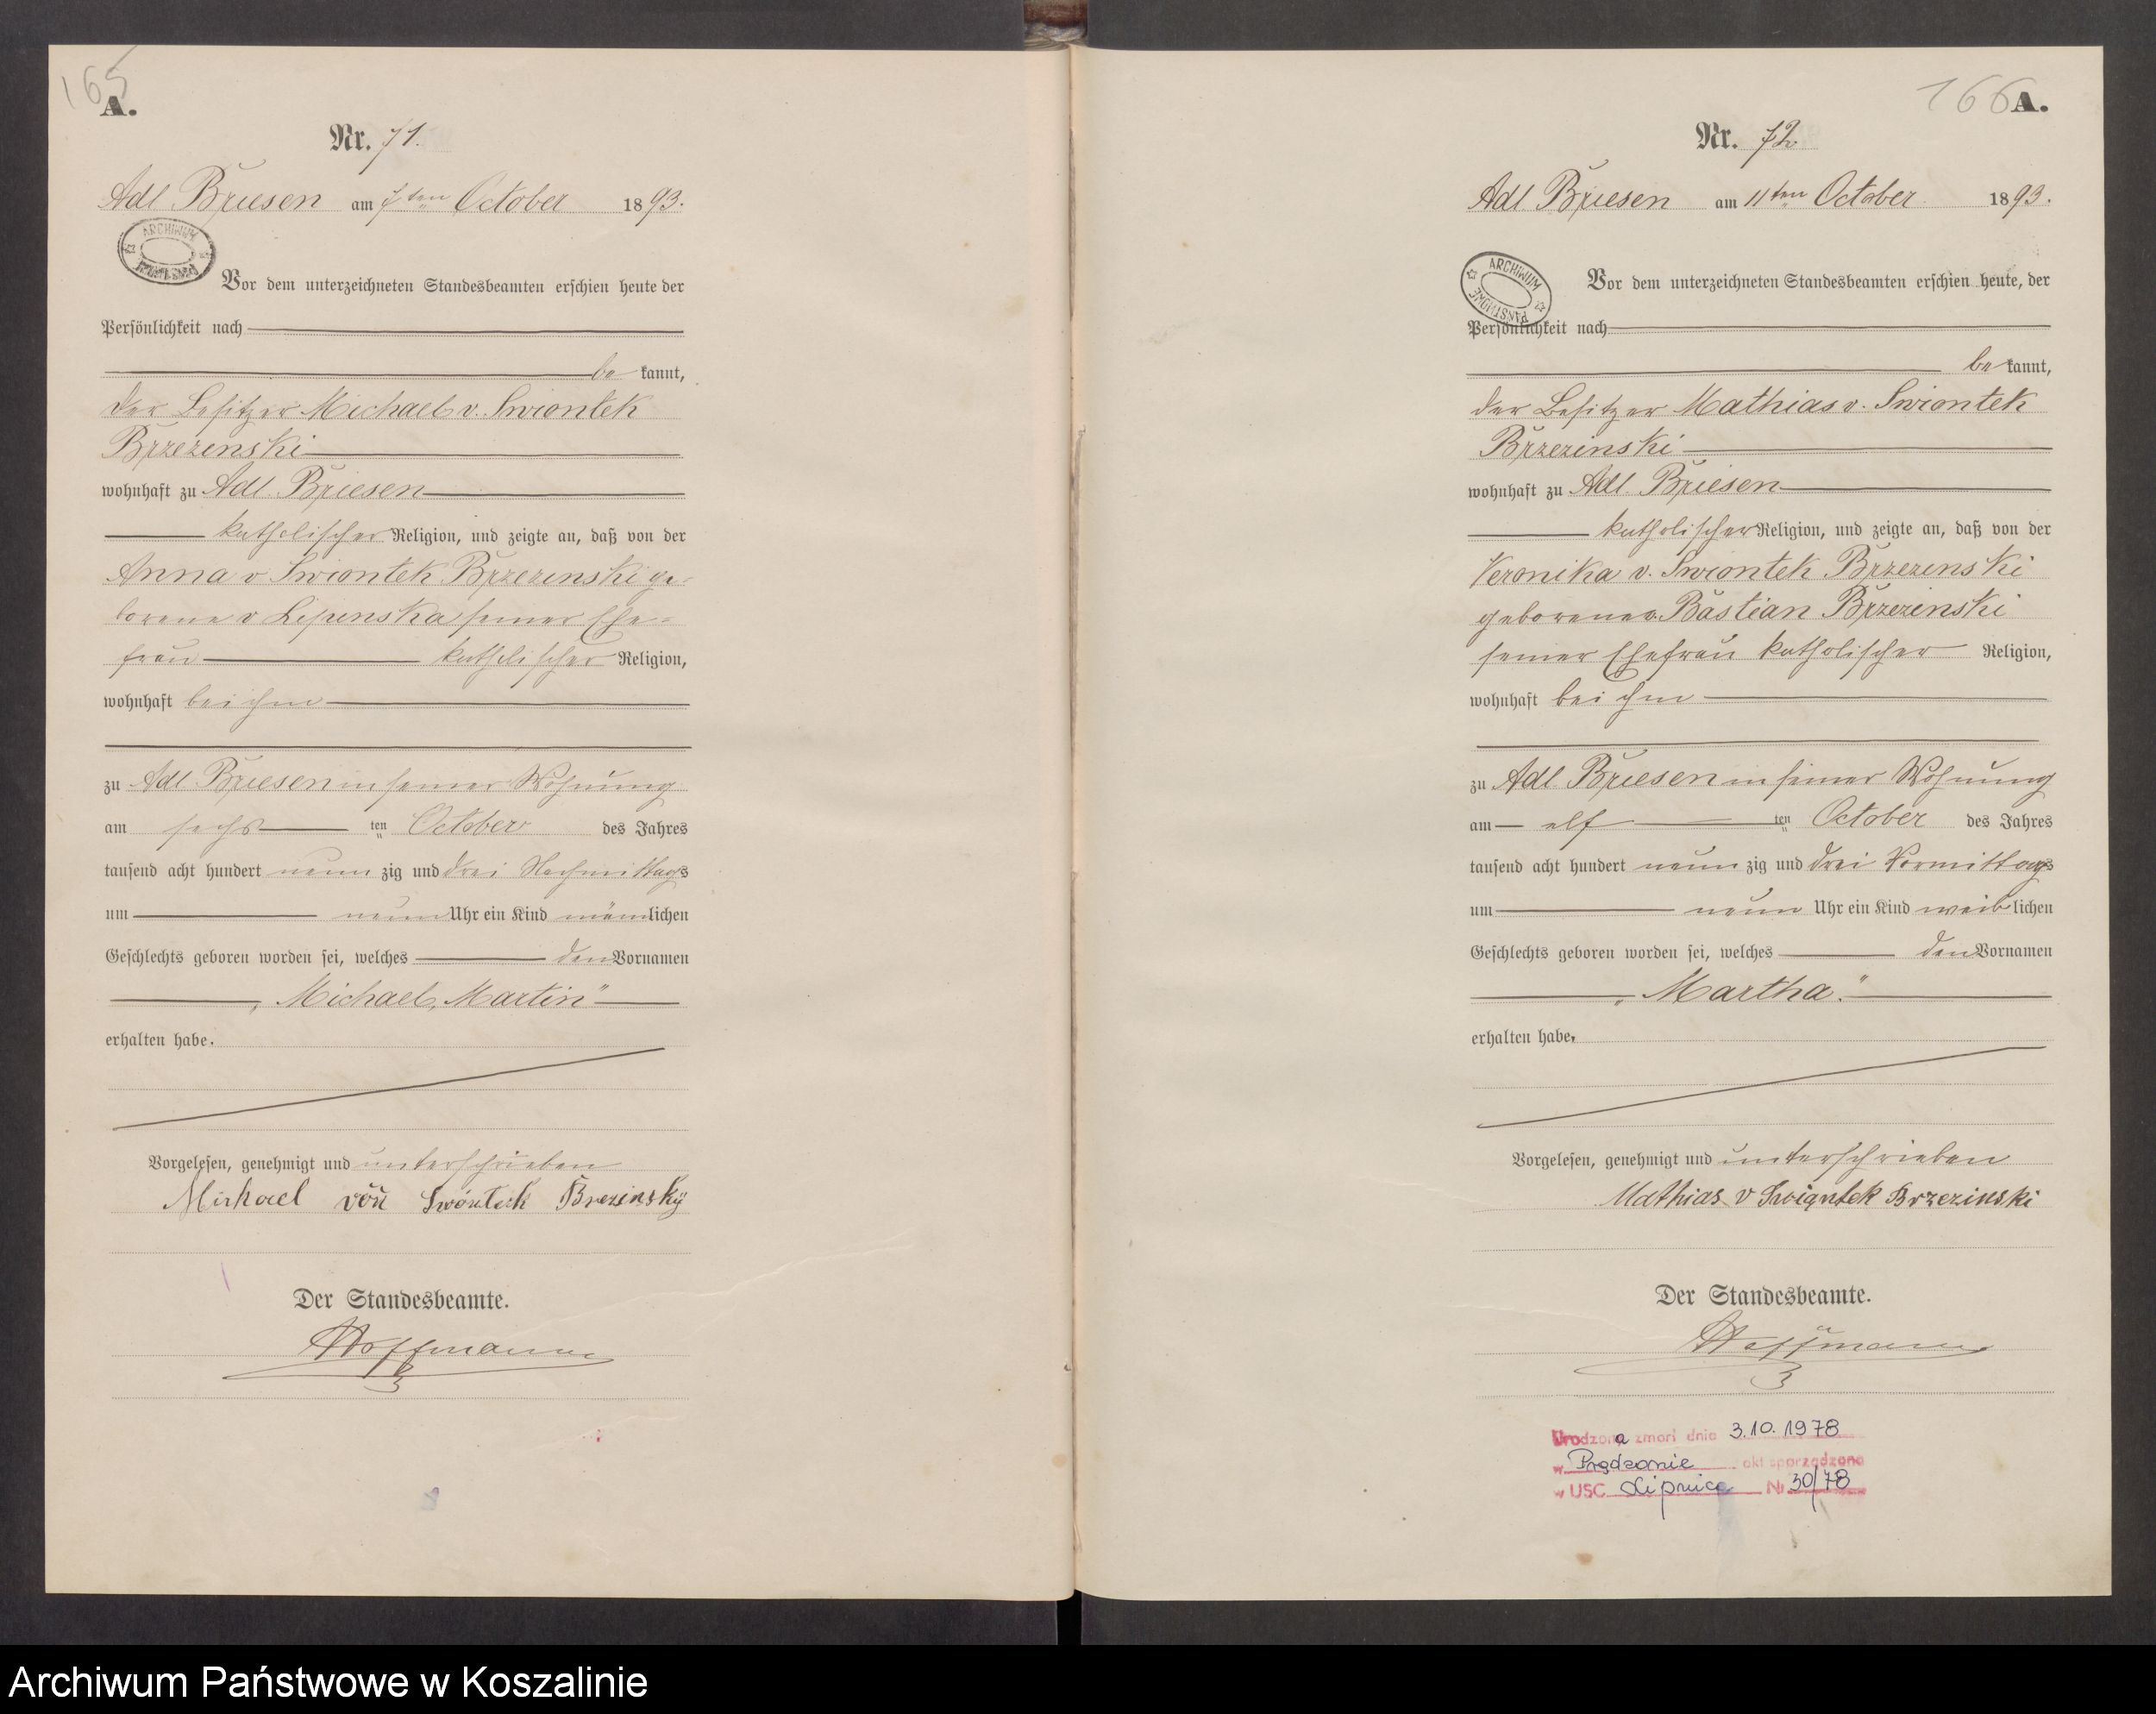 165
A.
Nr. 71.
Adl. Briesen am 7ten October 1893.
ARCHIWUM
Vor dem unterzeichneten Standesbeamten erschien heute, der
Persönlichkeit nach
be kannt,
der Besitzer Michael v. Swiontek
Brzezenski
wohnhaft zu Adl. Briesen
katholischer Religion, und zeigte an, daß von der
Anna v Swiontek Brzezenski ge-
borene v Lipenska seiner Ehe-
frau katholischer Religion,
wohnhaft bei ihm
zu Adl. Briesen in seiner Wohnung
am sechs ten October des Jahres
tausend acht hundert neun zig und drei Nachmittags
um neun Uhr ein Kind männlichen
Geschlechts geboren worden sei, welches den Vornamen
„Michael, Martin"
erhalten habe.
Vorgelesen, genehmigt und unterschrieben
Michael von Swóntek Brezinsky
Der Standesbeamte.
Hoffmann
166
A.
Nr. 72
Adl. Briesen am 11ten October 1893.
ARCHIWUM PAŃSTWOWE
Vor dem unterzeichneten Standesbeamten erschien heute, der
Persönlichkeit nach
be kannt,
der Besitzer Mathias v. Swiontek
Brzezinski
wohnhaft zu Adl. Briesen
katholischer Religion, und zeigte an, daß von der
Veronika v. Swiontek Brzezenski
geborene v. Bastian Brzezinski
seiner Ehefrau katholischer Religion,
wohnhaft bei ihm
zu Adl. Briesen in seiner Wohnung
am elf ten October des Jahres
tausend acht hundert neun zig und drei Vormittags
um neun Uhr ein Kind weib lichen
Geschlechts geboren worden sei, welches den Vornamen
„Martha."
erhalten habe.
Vorgelesen, genehmigt und unterschrieben
Mathias v Swiątek Brzezinski
Der Standesbeamte.
Hoffmann
Urodzona zmarł dnia 3.10.1978
w Prądzonie akt sporządzono
w USC Lipnica Nr 30/78
Archiwum Państwowe w Koszalinie